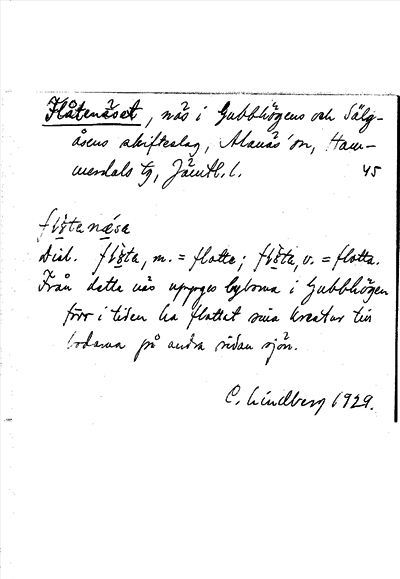 Flåtenäset, näs i Gubbhögens och Sälg-
åsens skifteslag, Alanäs sn, Ham-
merdals tg, Jämtl. l. 45
flo̱tanæsa
Dial. flo̱ta, m. = flotte; flo̱ta, v. = flotta.
Från detta näs uppges byborna i Gubbhögen
förr i tiden ha flottat sina kreatur till
bodarna på andra sidan sjön.
C. Lindberg 1929.